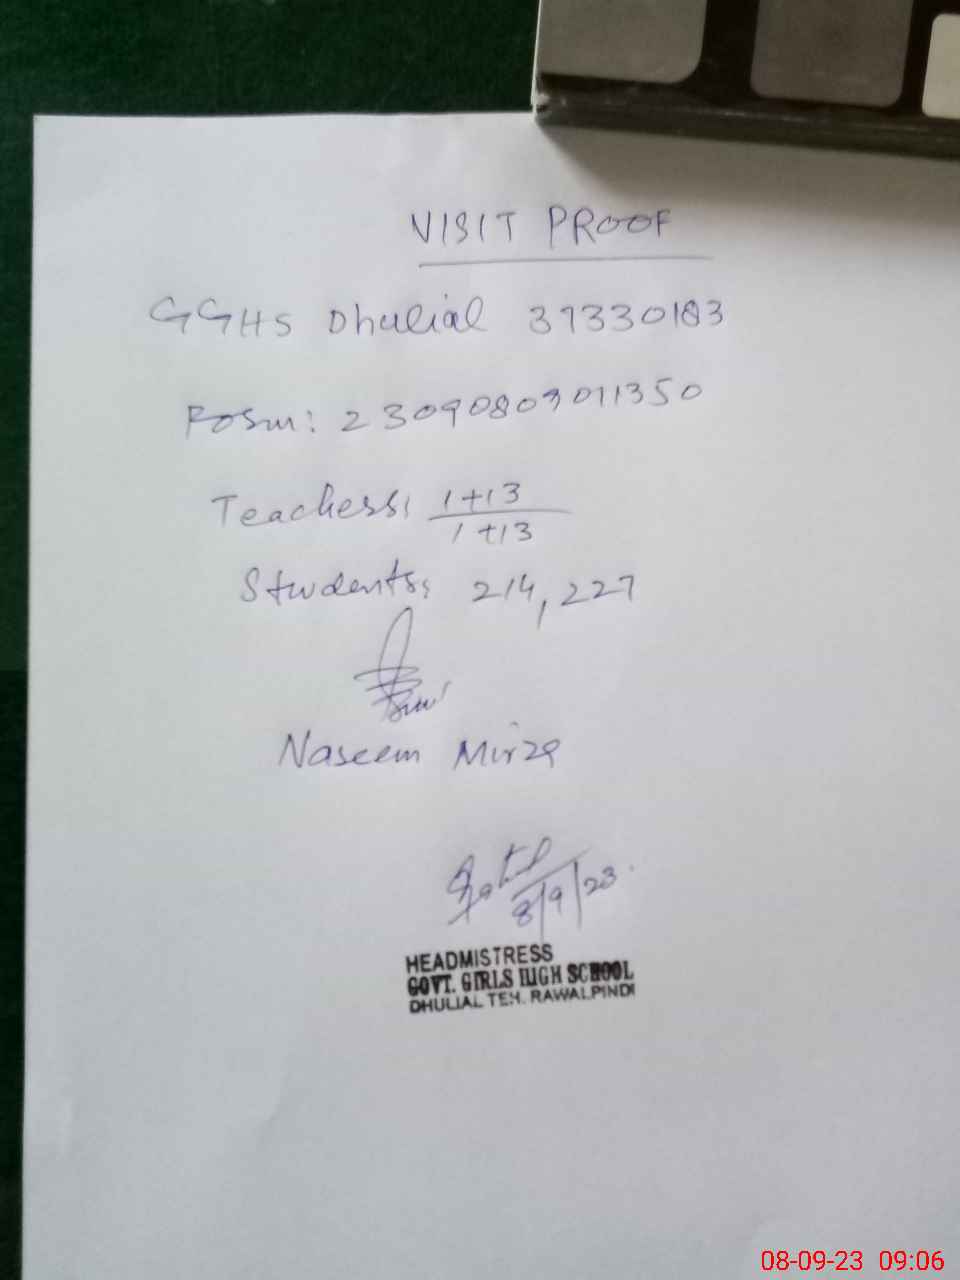 VISIT PROOF
GGHS Dhulial 37330183
Form: 23090809011350
Teachers: 1+13
1+13
Students: 214, 227
Naseem Mirza
8/9/23
HEADMISTRESS
GOVT. GIRLS HIGH SCHOOL
DHULIAL TEH. RAWALPINDI
08-09-23 09:06